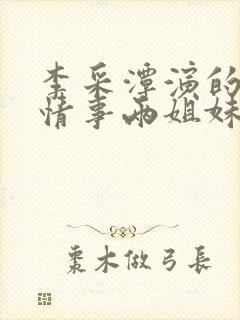 李采潭演的
情事两姐妹
棗木做弓長